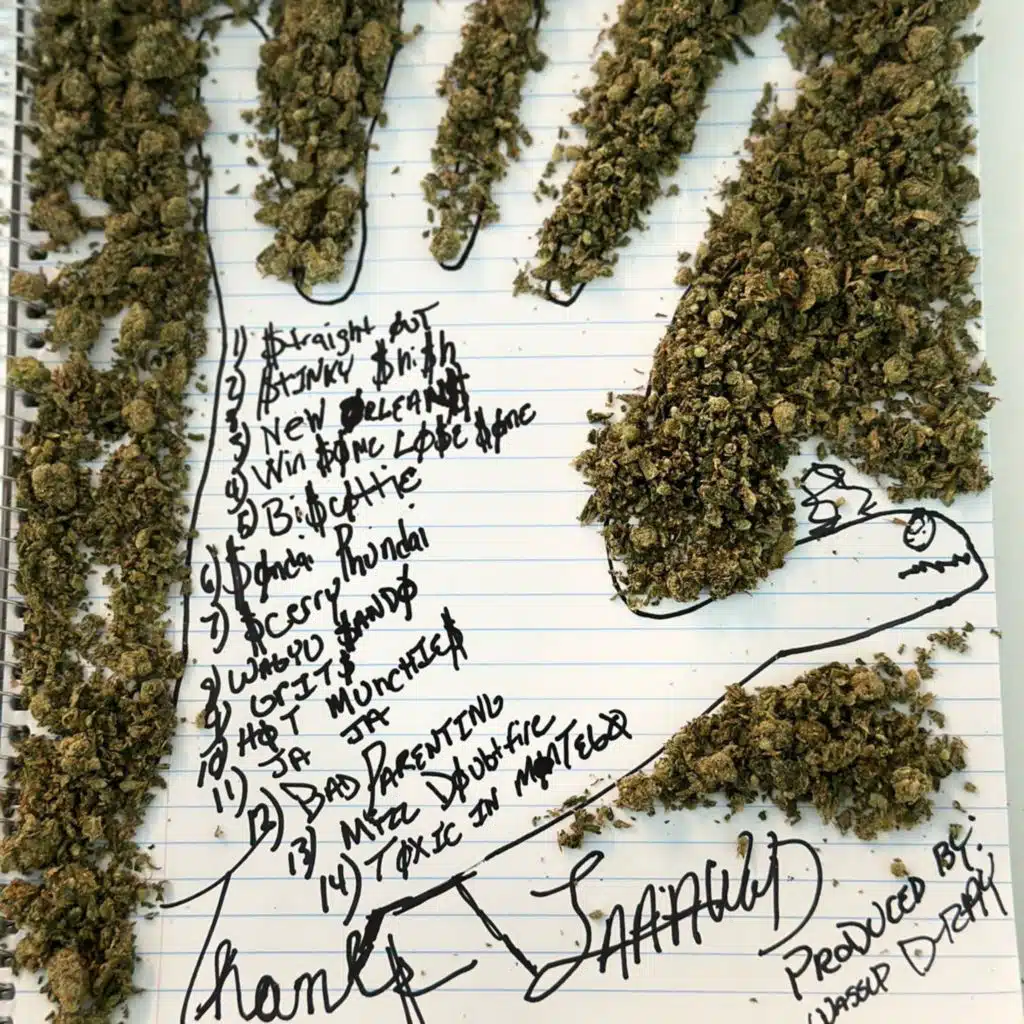 1) $traight ØUT
2) $TINKY $hi$h
3) NEW ØRLEAN$
4) Win $ØME LØ$E $ØME
5) Bi$cøttie
6) $øndai Phundai
7) $cerry
8) WAGYU $AND$
9) GRIT$
10) HØT MUNCHIE$
11) JA JA
12) BAD PARENTING
13) Mizz DØubtfire
14) TØXIC IN MØNTEGØ
Thank$
PRODUCED BY:
WASSUP D-RAY